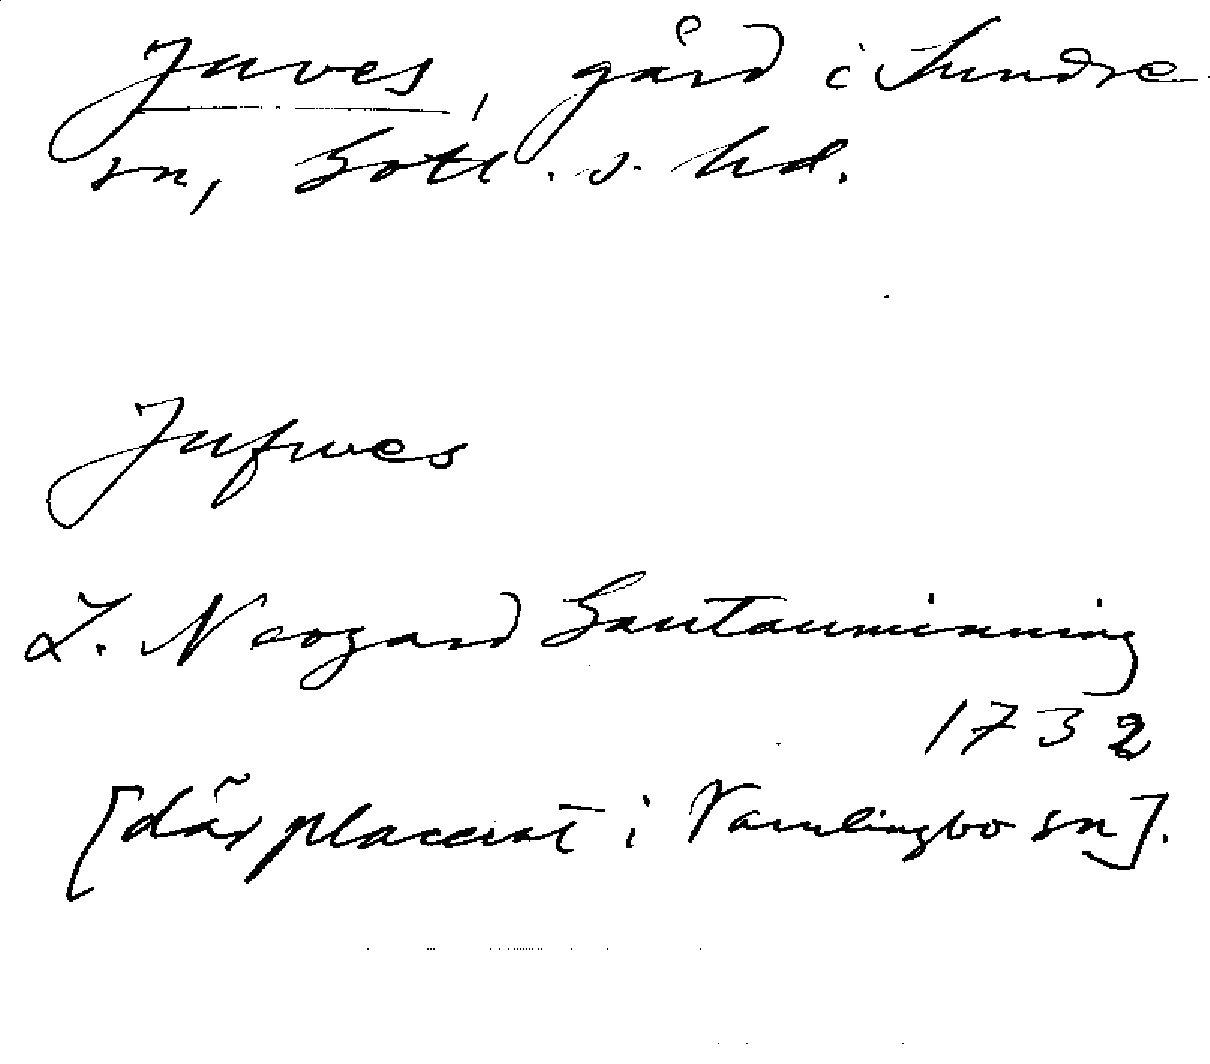 Juves, gård i Sundre
sn, Gotl. s. hd.
Jufwes
L. Neogard Gautauminning
1732
[där placerat i Vamlingbo sn].